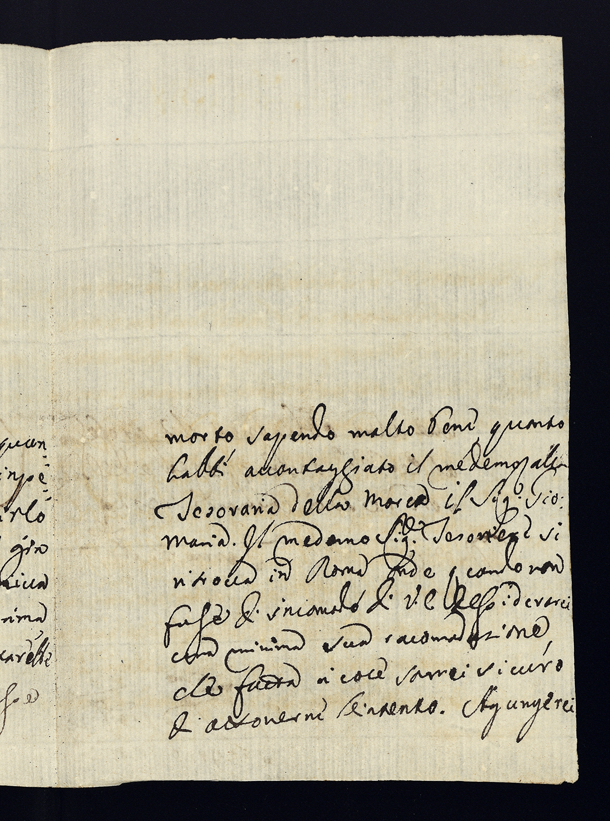 quan-
inpe-
arlo
gra
micca
rima
morto sapendo molto bene quanto
habbi avontaggiato il medemo alla
Tesoraria della Marca il Sig. Gio:
Maria. Il medemo Sig. Tesoriere si
ritrova in Roma onde quando non
fusse d'incomodo di V.E. desiderarei
una minima sua racomadatione
che fatta a voce sarrei sicuro
d'attonerne l'intento. Agiungerei